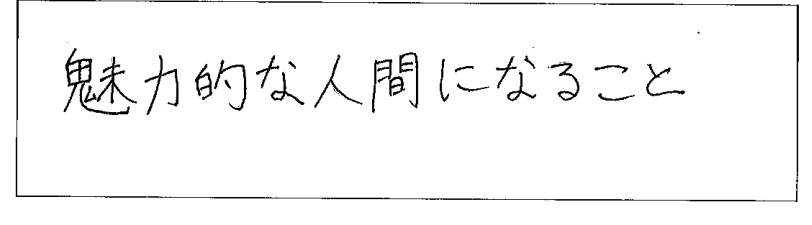 魅力的な人間になること